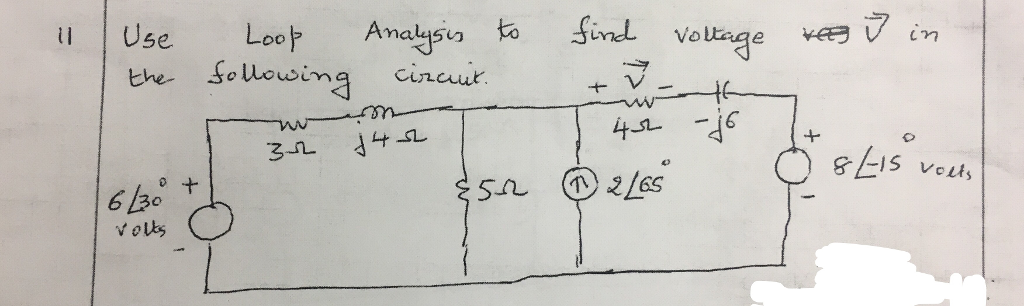 11 Use Loop Analysis to find voltage V in
the following circuit.
+ V -
3Ω j4Ω 4Ω -j6
6∠30° volts + -
5Ω
2∠65°
8∠-15° volts + -